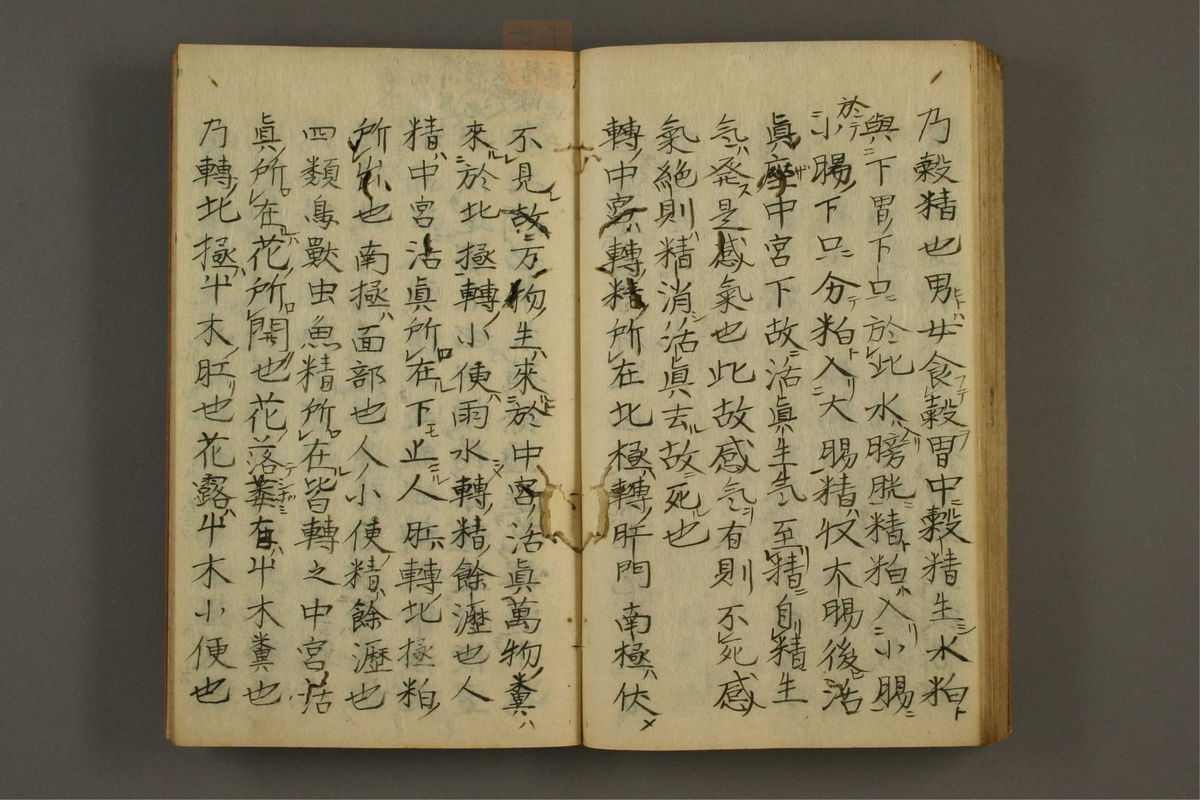 乃穀精也男女食穀胃中穀精生水粕
與下胃下口於此水膀胱精粕入小腸
於小腸下口分粕入大腸精收大腸後活
眞座中宮下故活眞生氣至精自精生
気発是感氣也此故感気有則不死感
氣絶則精消活眞去故死也
轉中宮轉精所在北極轉肝門南極伏
不見故万物生來於中宮活眞萬物糞
來於北極轉小便雨水轉精餘瀝也人
精中宮活眞所在下止人肛轉北極粕
所出也南極面部也人小便精餘瀝也
四類鳥獣虫魚精所在皆轉之中宮活
眞所在花所開也花落蒂在艸木糞也
乃轉北極艸木肛也花露艸木小便也